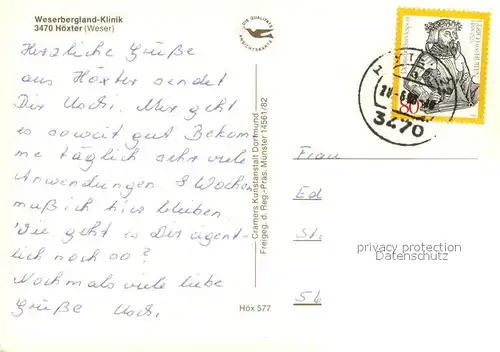 Weserbergland-Klinik
3470 Höxter (Weser)
DIE QUALITÄTS
ANSICHTSKARTE
Herzliche Grüße
aus Höxter sendet
Dir Uschi. Mir geht
es soweit gut Bekom
me täglich sehr viele
Anwendungen 8 Wochen
muß ich hier bleiben.
Wie geht es Dir eigent-
lich noch so?
Nochmals viele liebe
Grüße Usch.
Cramers Kunstanstalt Dortmund
Freigeg. d. Reg.-Präs. Münster 14561/82
Höx 577
80
3470
Frau
Ed
St
56
privacy protection
Datenschutz